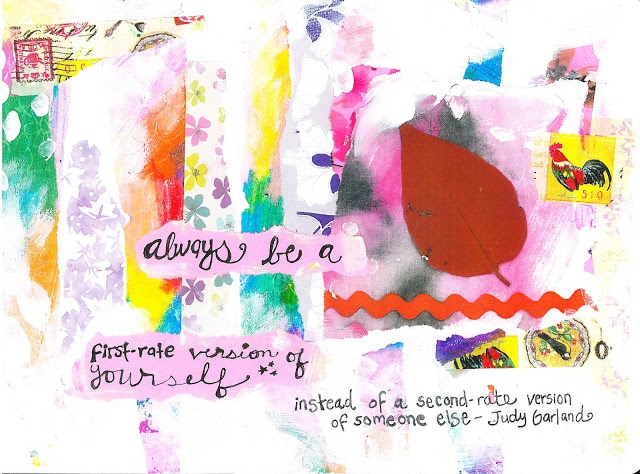 always be a
first-rate version of
yourself
instead of a second-rate version
of someone else - Judy Garland